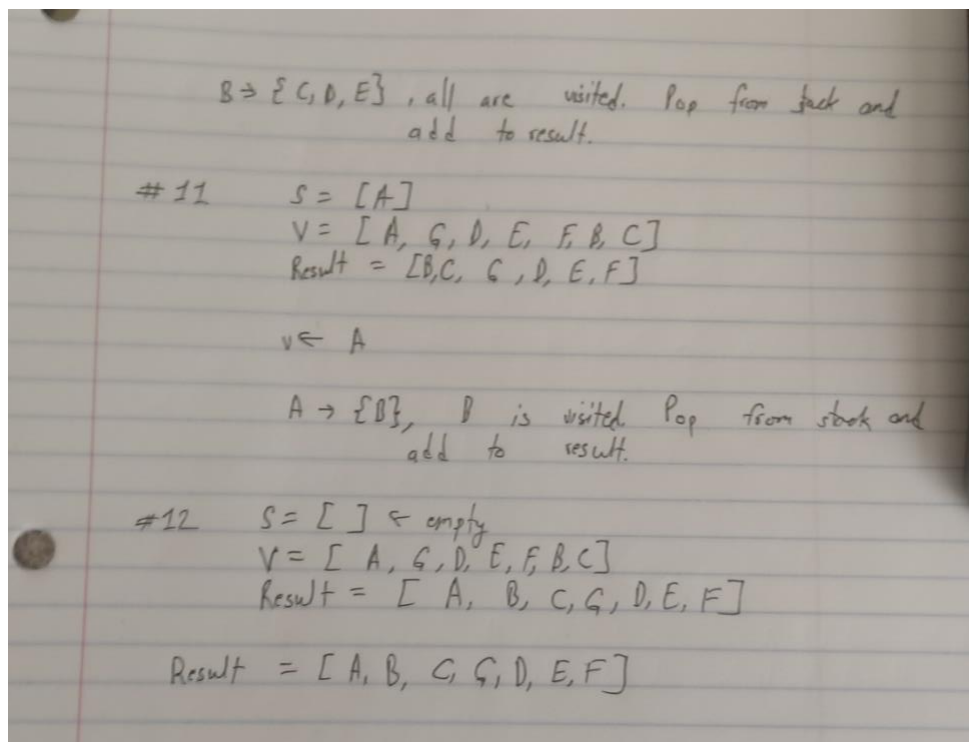 B → { C, D, E} , all are visited. Pop from stack and
add to result.
# 11 S = [A]
V = [ A, G, D, E, F, B, C]
Result = [B,C, G , D, E, F]
v ← A
A → {B}, B is visited. Pop from stack and
add to result.
#12 S = [ ] ← empty
V = [ A, G, D, E, F, B, C]
Result = [ A, B, C, G, D, E, F]
Result = [ A, B, C, G, D, E, F]